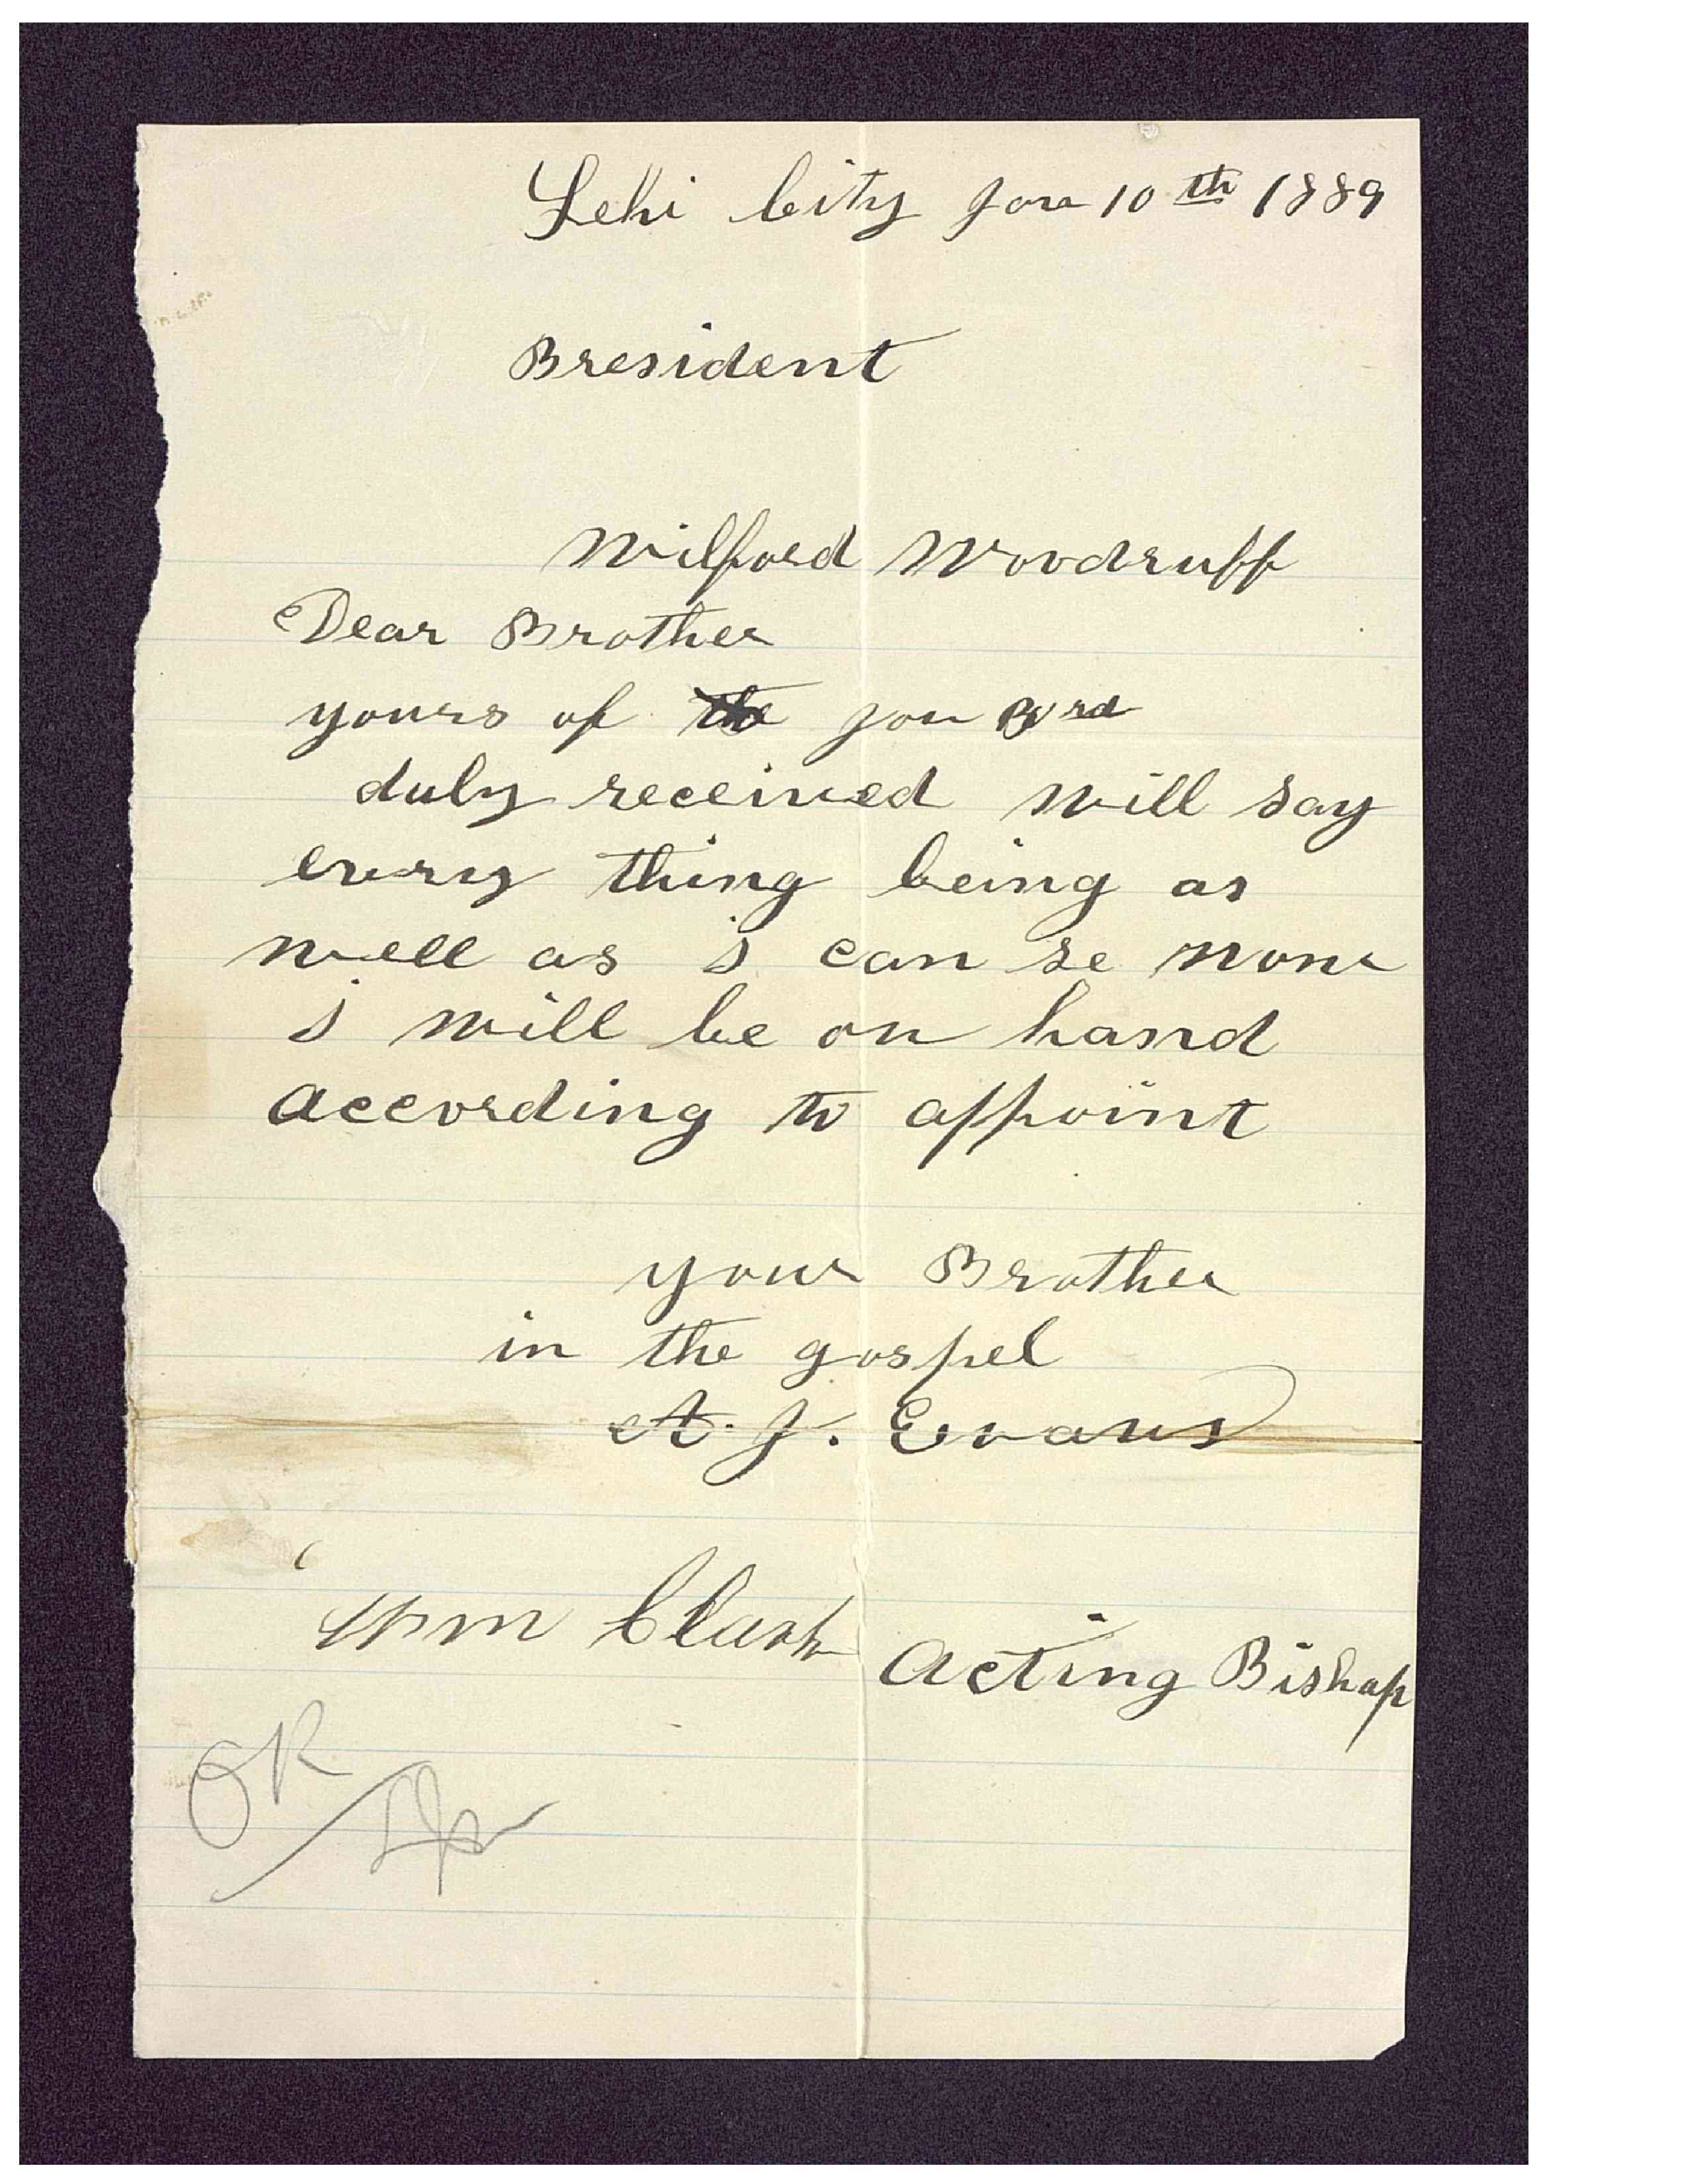 Lehi City Jan 10th 1889
President
Wilford Woodruff
Dear Brother
yours of Jan 3rd
duly received will say
every thing being as
well as i can se now
i will be on hand
according to appoint
your Brother
in the gospel
A. J. Evans
Wm Clark Acting Bishop
OK